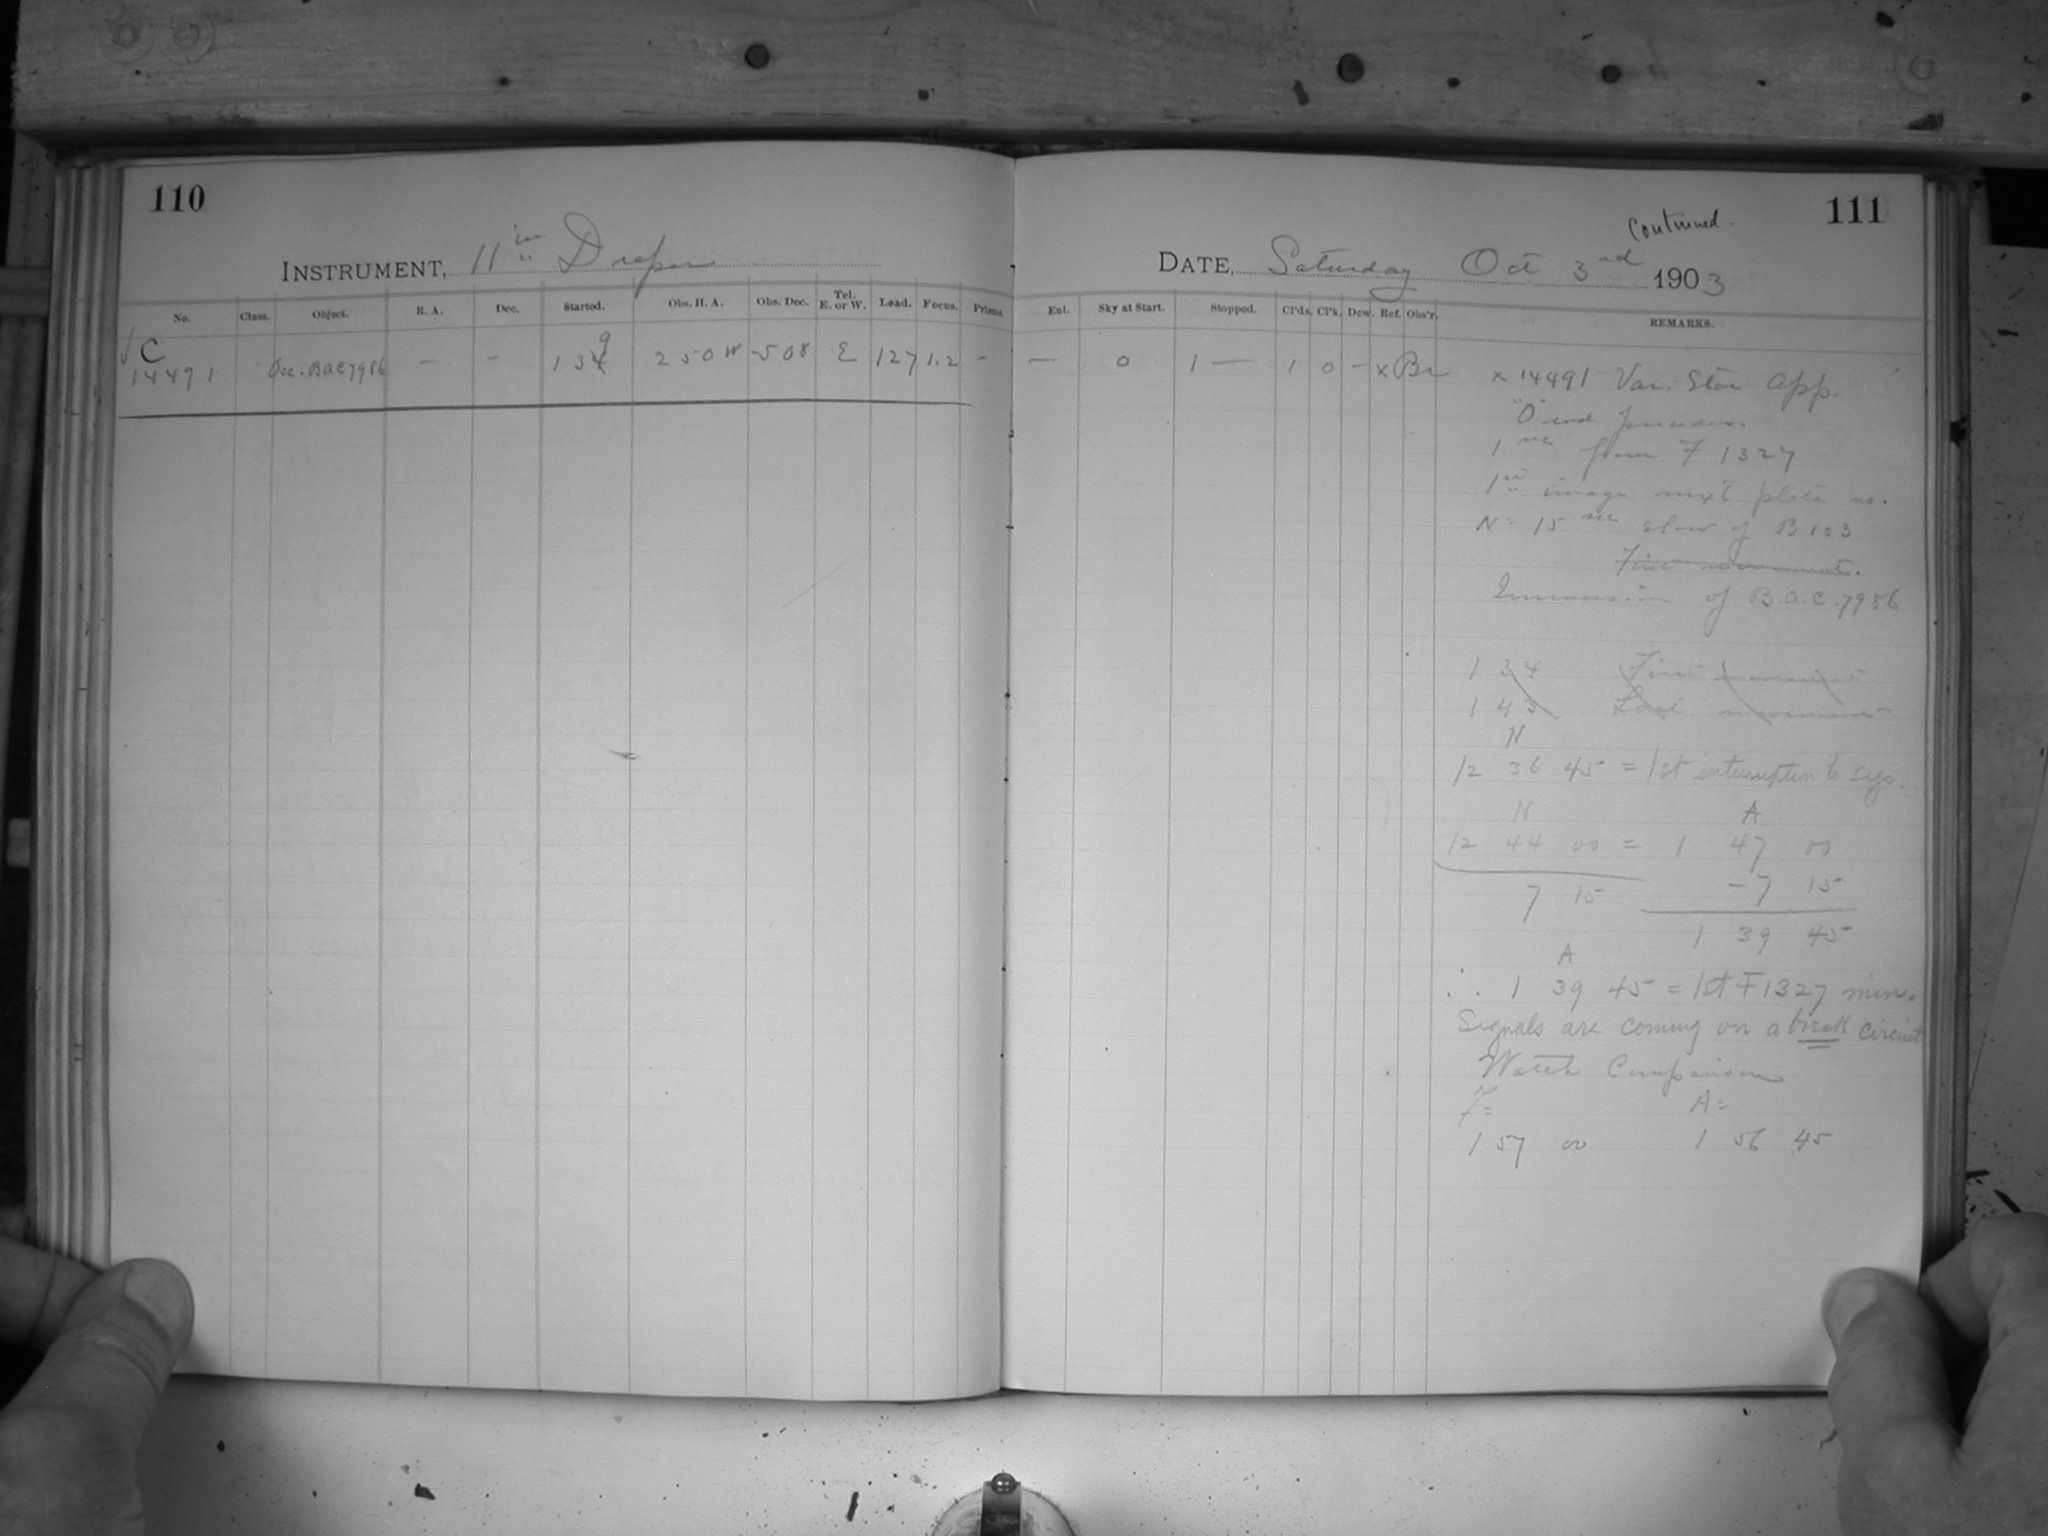 110
INSTRUMENT, 11 in Draper
No. Class. Object. R. A. Dec. Started. Obs. H. A. Obs. Dec. Tel. E. or W. Load. Focus. Prisms.
C 14491 Occ. B.a.C 7986 — — 1 34 9 2 50 W -5 08 E 127 1.2 —
Continued.
111
DATE, Saturday Oct 3rd 1903
Enl. Sky at Start. Stopped. Cl'ds. Cl'k. Dew. Ref. Obs'r. REMARKS.
— 0 1 — 1 0 — x Br x 14491 Var. Star app.
"O" end precedes.
from F 1327
image next plate no.
N = 15 sec slow of B 103
First movement.
Immersion of B.a.C. 7986
1 34 First movement
1 43 Last movement
N
12 36 45 = 1st interruption to sys.
N A
12 44 00 = 1 47 00
7 15 -7 15
1 39 45
A
∴ 1 39 45 = 1st F 1327 min.
Signals are coming on a break circuit
Watch Comparison
F= A=
1 57 00 1 56 45